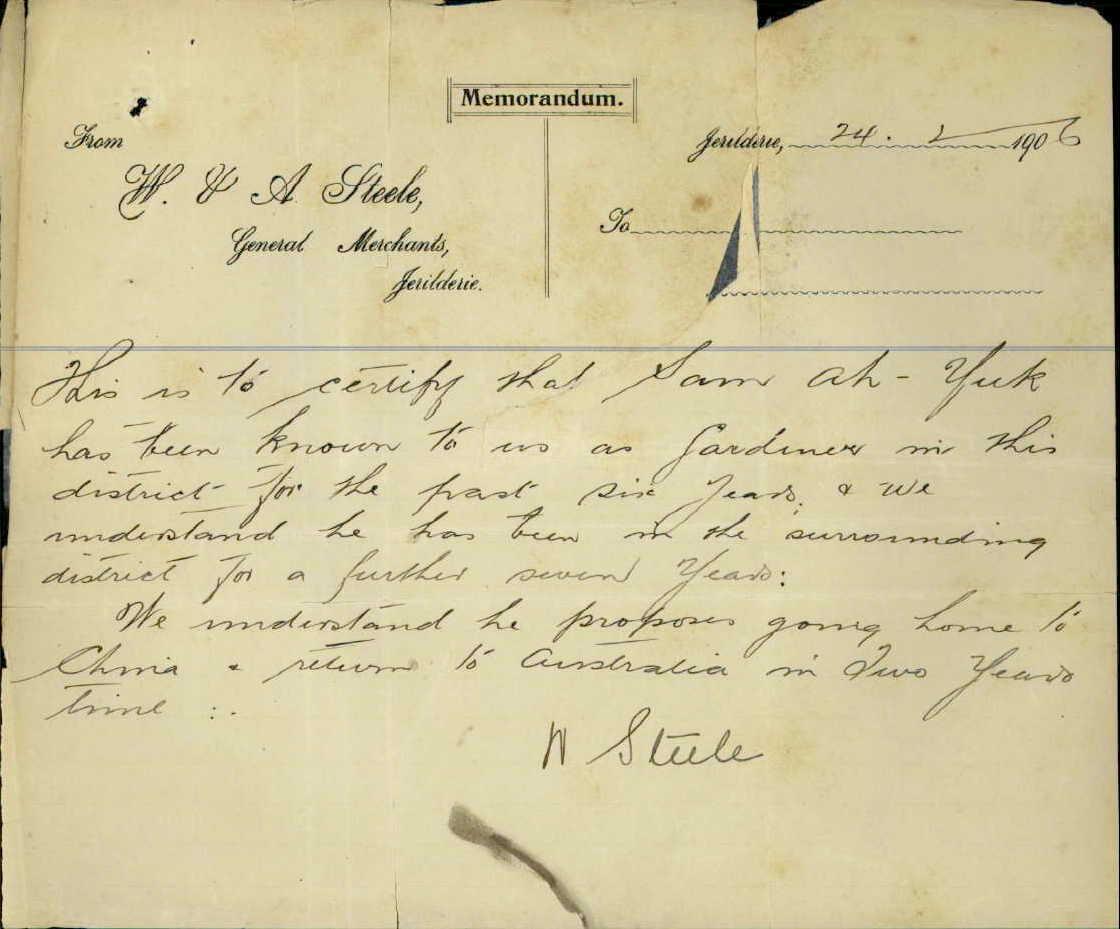 Memorandum.
From
Jerilderie, 24. 2 1906
W. & A. Steele,
To
General Merchants,
Jerilderie.
This is to certify that Sam Ah-Yuk
has been known to us as Gardiner in this
district for the past six years. & we
understand he has been in the surrounding
district for a further seven Years:
We understand he proposes going home to
China & return to Australia in Two Years
time :.
W Steele